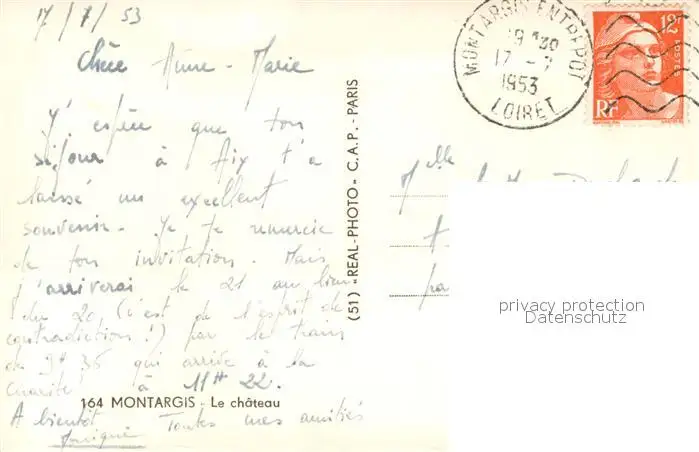 17/7/53
Chère Anne-Marie
J'espère que ton
séjour à Aix t'a
laissé un excellent
souvenir. Je te remercie
de ton invitation. Mais
j'arriverai le 21 au lieu
du 20, (c'est de l'esprit de
contradiction!) par le train
de 9H 36 qui arrive à la
Charité à 11H 22.
164 MONTARGIS - Le château
A bientôt Toutes mes amitiés
MONTARGIS ENTREPOT
19H30
17 - 7
1953
LOIRET
12F
POSTES
RF
(51) REAL-PHOTO - C.A.P. - PARIS
Melle
privacy protection
Datenschutz